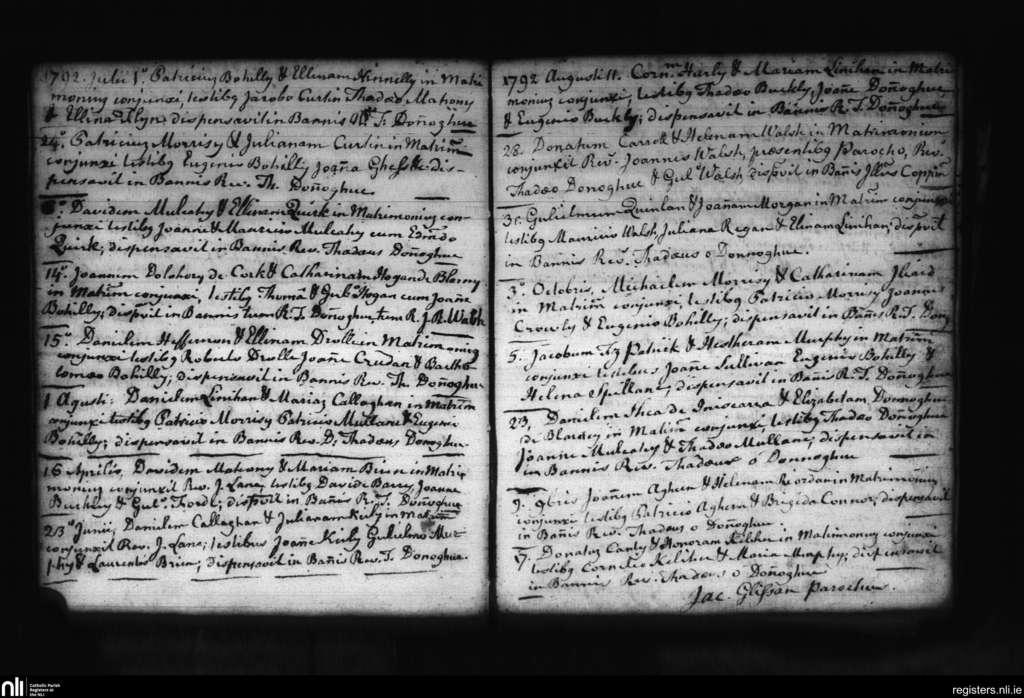 1792. Julii 1º. Patricius Bohilly & Ellenam Hinnelly in Matri
monium conjunxi, testibq Jacobo Curtin Thadæo Mahony
& Ellena Flyn; dispensavit in Bannis T: Doñoghue
24º. Patricius Morrisy & Julianam Curtin in Matrim̄
conjunxi testibq Eugenio Bohilly Joaña dis-
pensavit in Bannis Rev. Th. Doñoghue
Davidem Mulcahy & Ellenam Quirk in Matrimonium con-
junxi testibq Joanne & Mauricio Mulcahy cum Edm̄do
Quirk; dispensavit in Bannis Rev. Thadæus Doñoghue
14º. Joannem Dolohery de Cork & Catharinam Hogan de Blarny
in Matrim̄ conjunxi, testibq Thomâ & Hogan cum Joañe
Bohilly; dispvit in Bannis tum R. T. Donoghue, tum R. J. B. Walsh
15º. Danielem Heffernon & Ellenam Drolle in Matrimonium
conjunxi testibq Roberto Drolle Joañe Creedan & Bartho-
lomeo Bohilly; dispensavit in Bannis Rev. Th. Doñoghue
1 Agusti: Danielem Linihan & Mariā Callaghan in Matrim̄
conjunxi testibq Patricio Morrisy Patricio Mullane & Eugenio
Bohilly; dispensavit in Bannis Rev. D. Thadæus Donoghue
16 Aprilis, Davidem Mahony & Mariam Brien in Matri-
monium conjunxit Rev. J. Lane, testibq Davide Barry, Joanne
Buckley & Gul. Forde; dispvit in Bañis R. T. Doñoghue
23º Junii, Danielem Callaghan & Julianam Kiely in Matrim̄
conjunxit Rev. J. Lane; testibus Joañe Kiely Gulielmo Mur-
phy & Laurentio Brien; dispensavit in Bañis Rev. T. Donoghue.
1792 Augusti 11. Corn.m Hurly & Mariam Linihan in Matri
monium conjunxi, testibq Thadæo Buckly, Joañe Donoghue
& Eugenio Buckly; dispensavit in Bannis R. T. Doñoghue
28. Donatum Carroll & Helenam Walsh in Matrimonium
conjunxit Rev. Joannis Walsh, presentibq Parocho, Rev.
Thadæo Donoghue & Gul. Walsh dispvit in Bañis Coppin
Gulielmum Quinlan & Joañam Morgan in Matrim̄ conjunxi
testibq Mauricio Walsh, Juliana Regan & Elena Linihan; dispvit
in Bannis Rev. Thadæus o Donnoghue.
3º. Octobris, Michaelem Morrisy & Catharinam
in Matrim̄ conjunxi, testibq Patricio Morrisy Joanne
Crowly & Eugenio Bohilly; dispensavit in Bañis R. T. Dong
5. Jacobum Fz Patrick & Hestheram Murphy in Matrim̄
conjunxi testibus Joañe Sullivan Eugenio Bohilly &
Helena Spillane; dispensavit in Bañis R. T. Donoghue
23, Danielem Shea de Iniscarra & Elizabetam Donnoghue
de Blarney in Matrim̄ conjunxi, testibq Thadæo Donoghue
Joanne Mulcahy & Thadæo Mullane; dispensavit in
in Bannis Rev. Thadæus o Donnoghue
9. Joañem Aghern & Helenam Reordan in Matrimonium
conjunxi testibq Patricio Aghern & Brigida Connor, dispensavit
in Bañis Rev. Thadæus o Doñoghue.
Donatū Canty & Honoram Keliher in Matrimonium conjunxi
testibq Cornelio Keliher & Maria Murphy; dispensavit
in Bannis Rev. Thadæus o Doñoghue
Jac. Glissan Parochus.
nli
Catholic Parish
Registers at
the NLI
registers.nli.ie